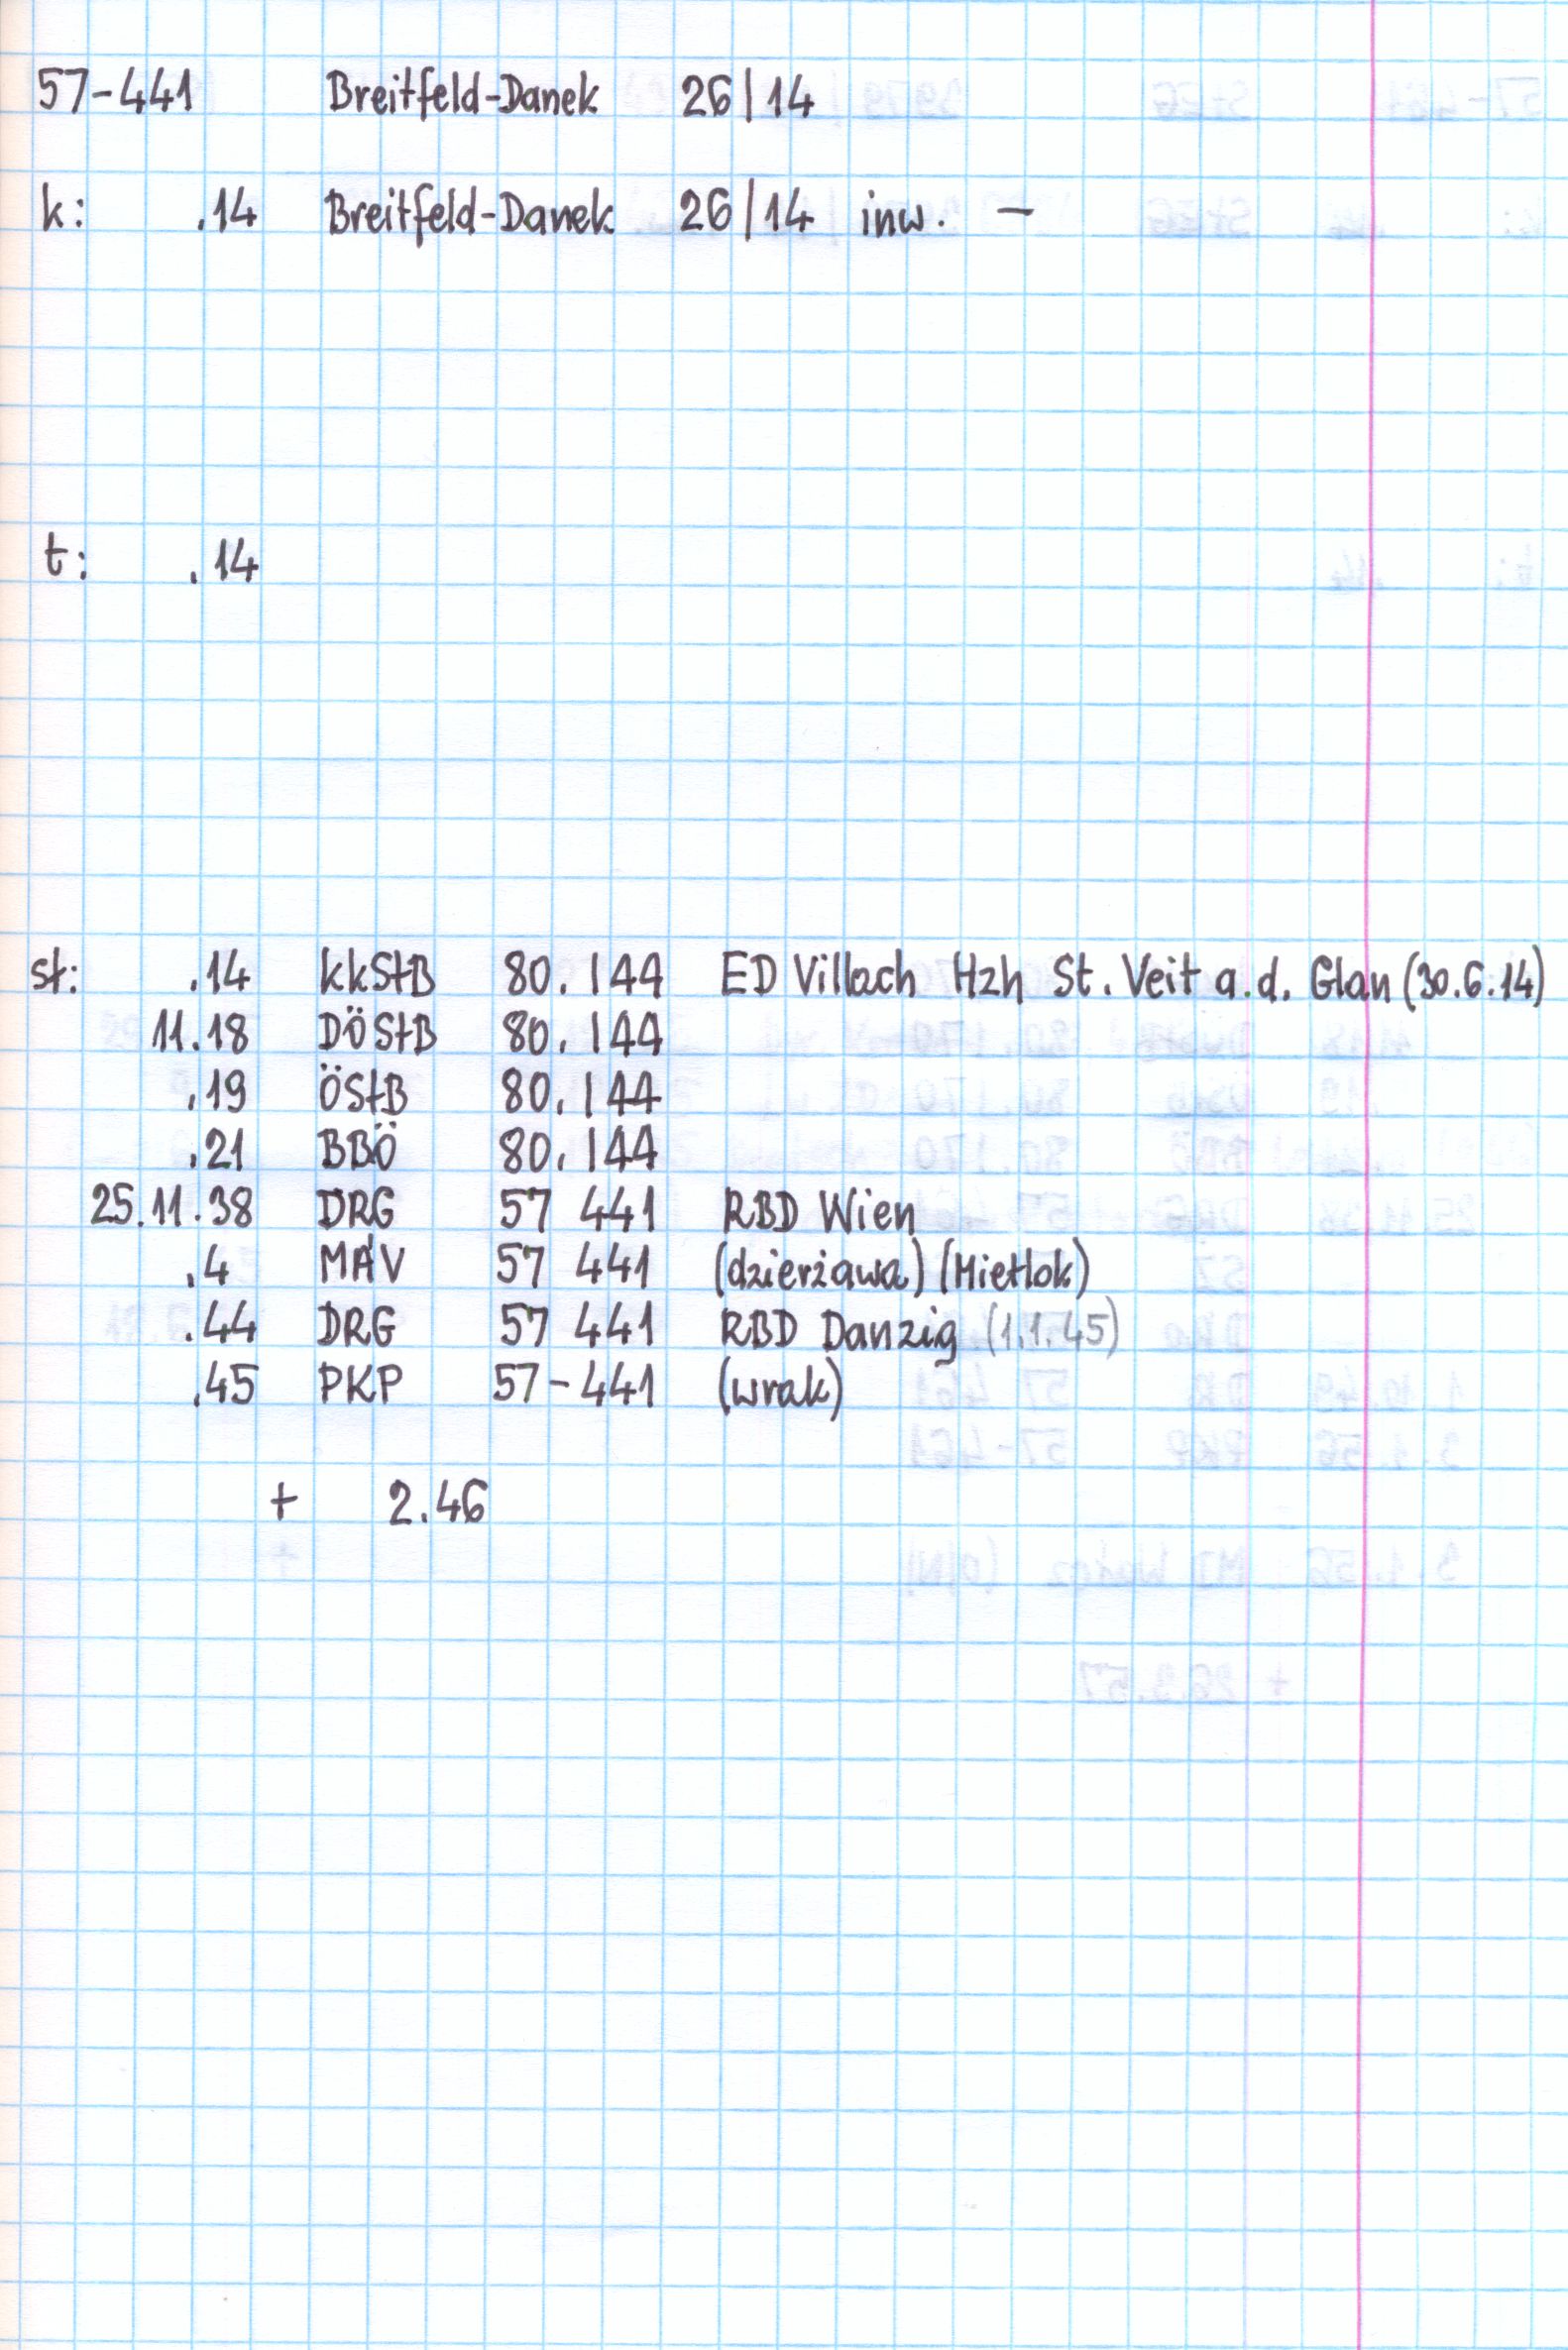 57-441 Breitfeld-Danek 26/14
k: .14 Breitfeld-Danek 26/14 inw. —
t: .14
st: .14 kkStB 80.144 ED Villach Hzh St. Veit a.d. Glan (30.6.14)
11.18 DÖStB 80.144
.19 ÖStB 80.144
.21 BBÖ 80.144
25.11.38 DRG 57 441 RBD Wien
.4 MÁV 57 441 (dzierżawa) (Mietlok)
.44 DRG 57 441 RBD Danzig (1.1.45)
.45 PKP 57-441 (wrak)
+ 2.46